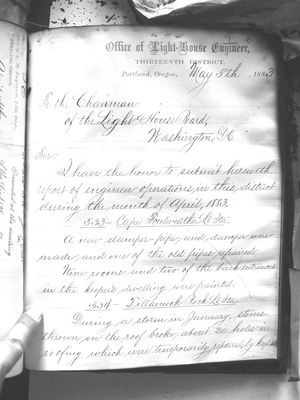 Office of Light-House Engineer,
THIRTEENTH DISTRICT,
Portland, Oregon, May 5th, 1883
To the Chairman
of the Light House Board,
Washington, D.C.
Sir:
I have the honor to submit herewith
report of engineer operations in this district
during the month of April, 1883.
533 - Cape L.S. Sta.
A new damper-pipe, and damper were
made, and one of the old pipes repaired.
Nine rooms and two of the back entrances
in the keeper's dwelling were painted.
534 - Tillamook Rock L. Sta.
During a storm in January, stones
thrown on the roof broke about 20 holes in
roofing which were temporarily repaired, by